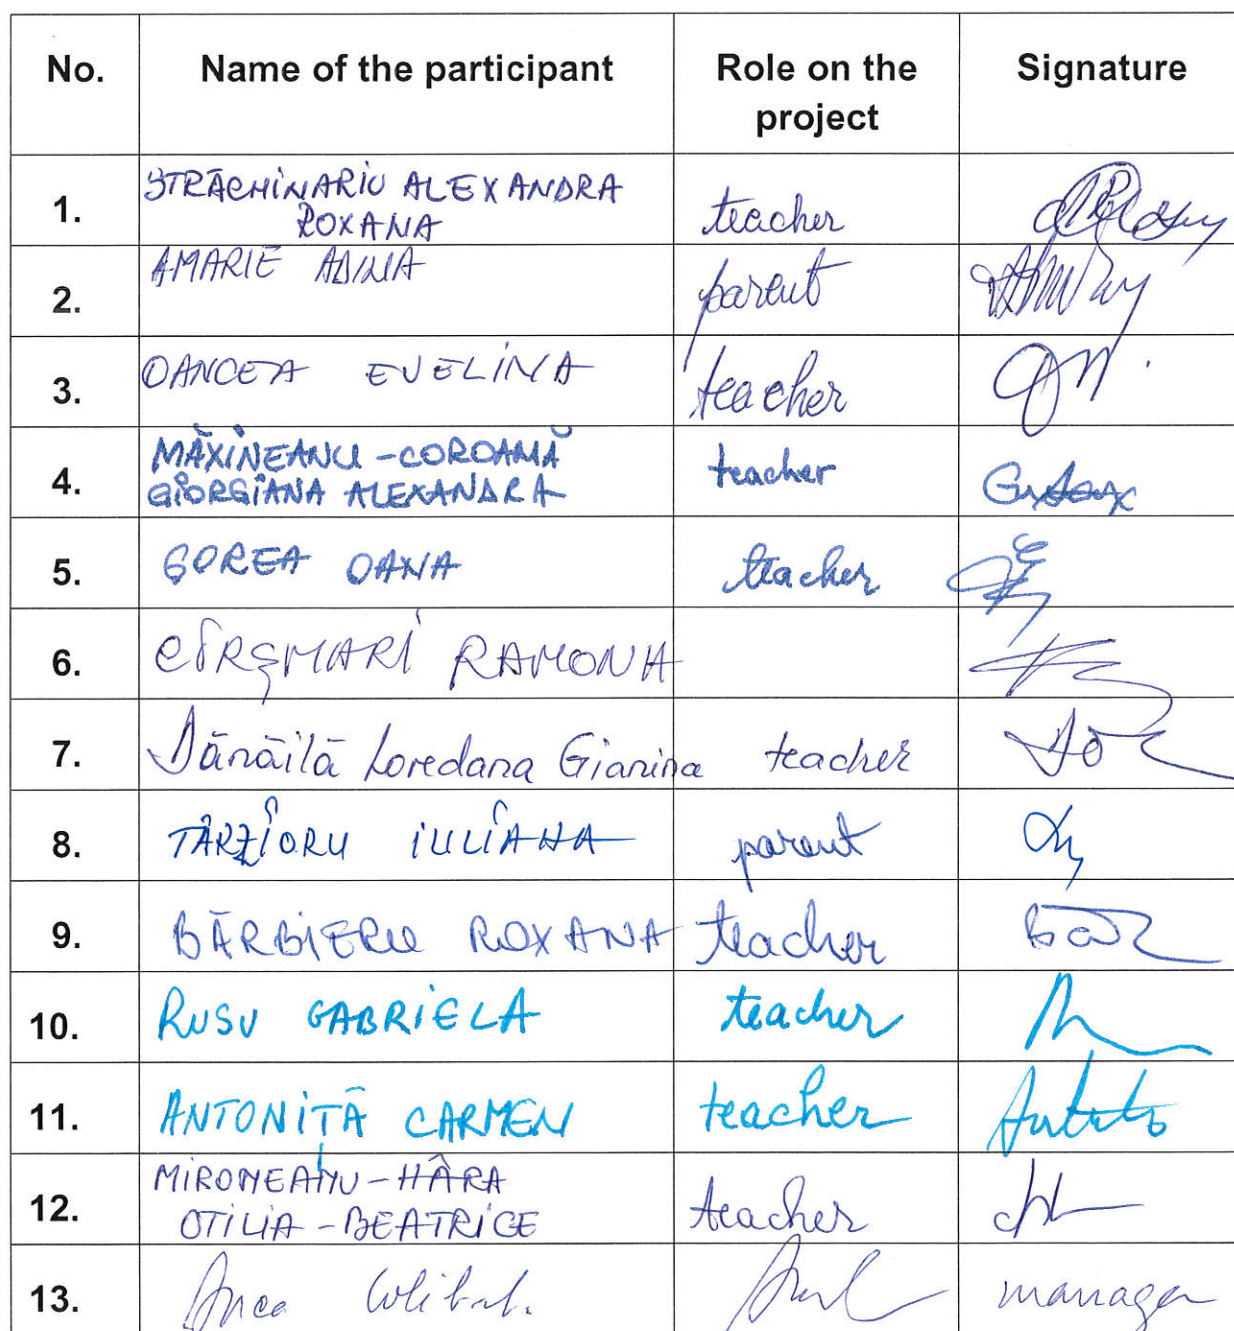 No. Name of the participant Role on the project Signature
1. STRĂCHINARIU ALEXANDRA
ROXANA teacher
2. AMARIE ADINA parent
3. OANCEA EVELINA teacher
4. MĂXINEANU-COROAMĂ
GIORGIANA ALEXANDRA teacher
5. GOREA OANA teacher
6. CÎRȘMARI RAMONA
7. Dănăilă Loredana Gianina teacher
8. TÂRZIORU IULIANA parent
9. BĂRBIERU ROXANA teacher
10. RUSU GABRIELA teacher
11. ANTONIȚĂ CARMEN teacher
12. MIRONEANU-HÂRA
OTILIA-BEATRICE teacher
13. Anca manager